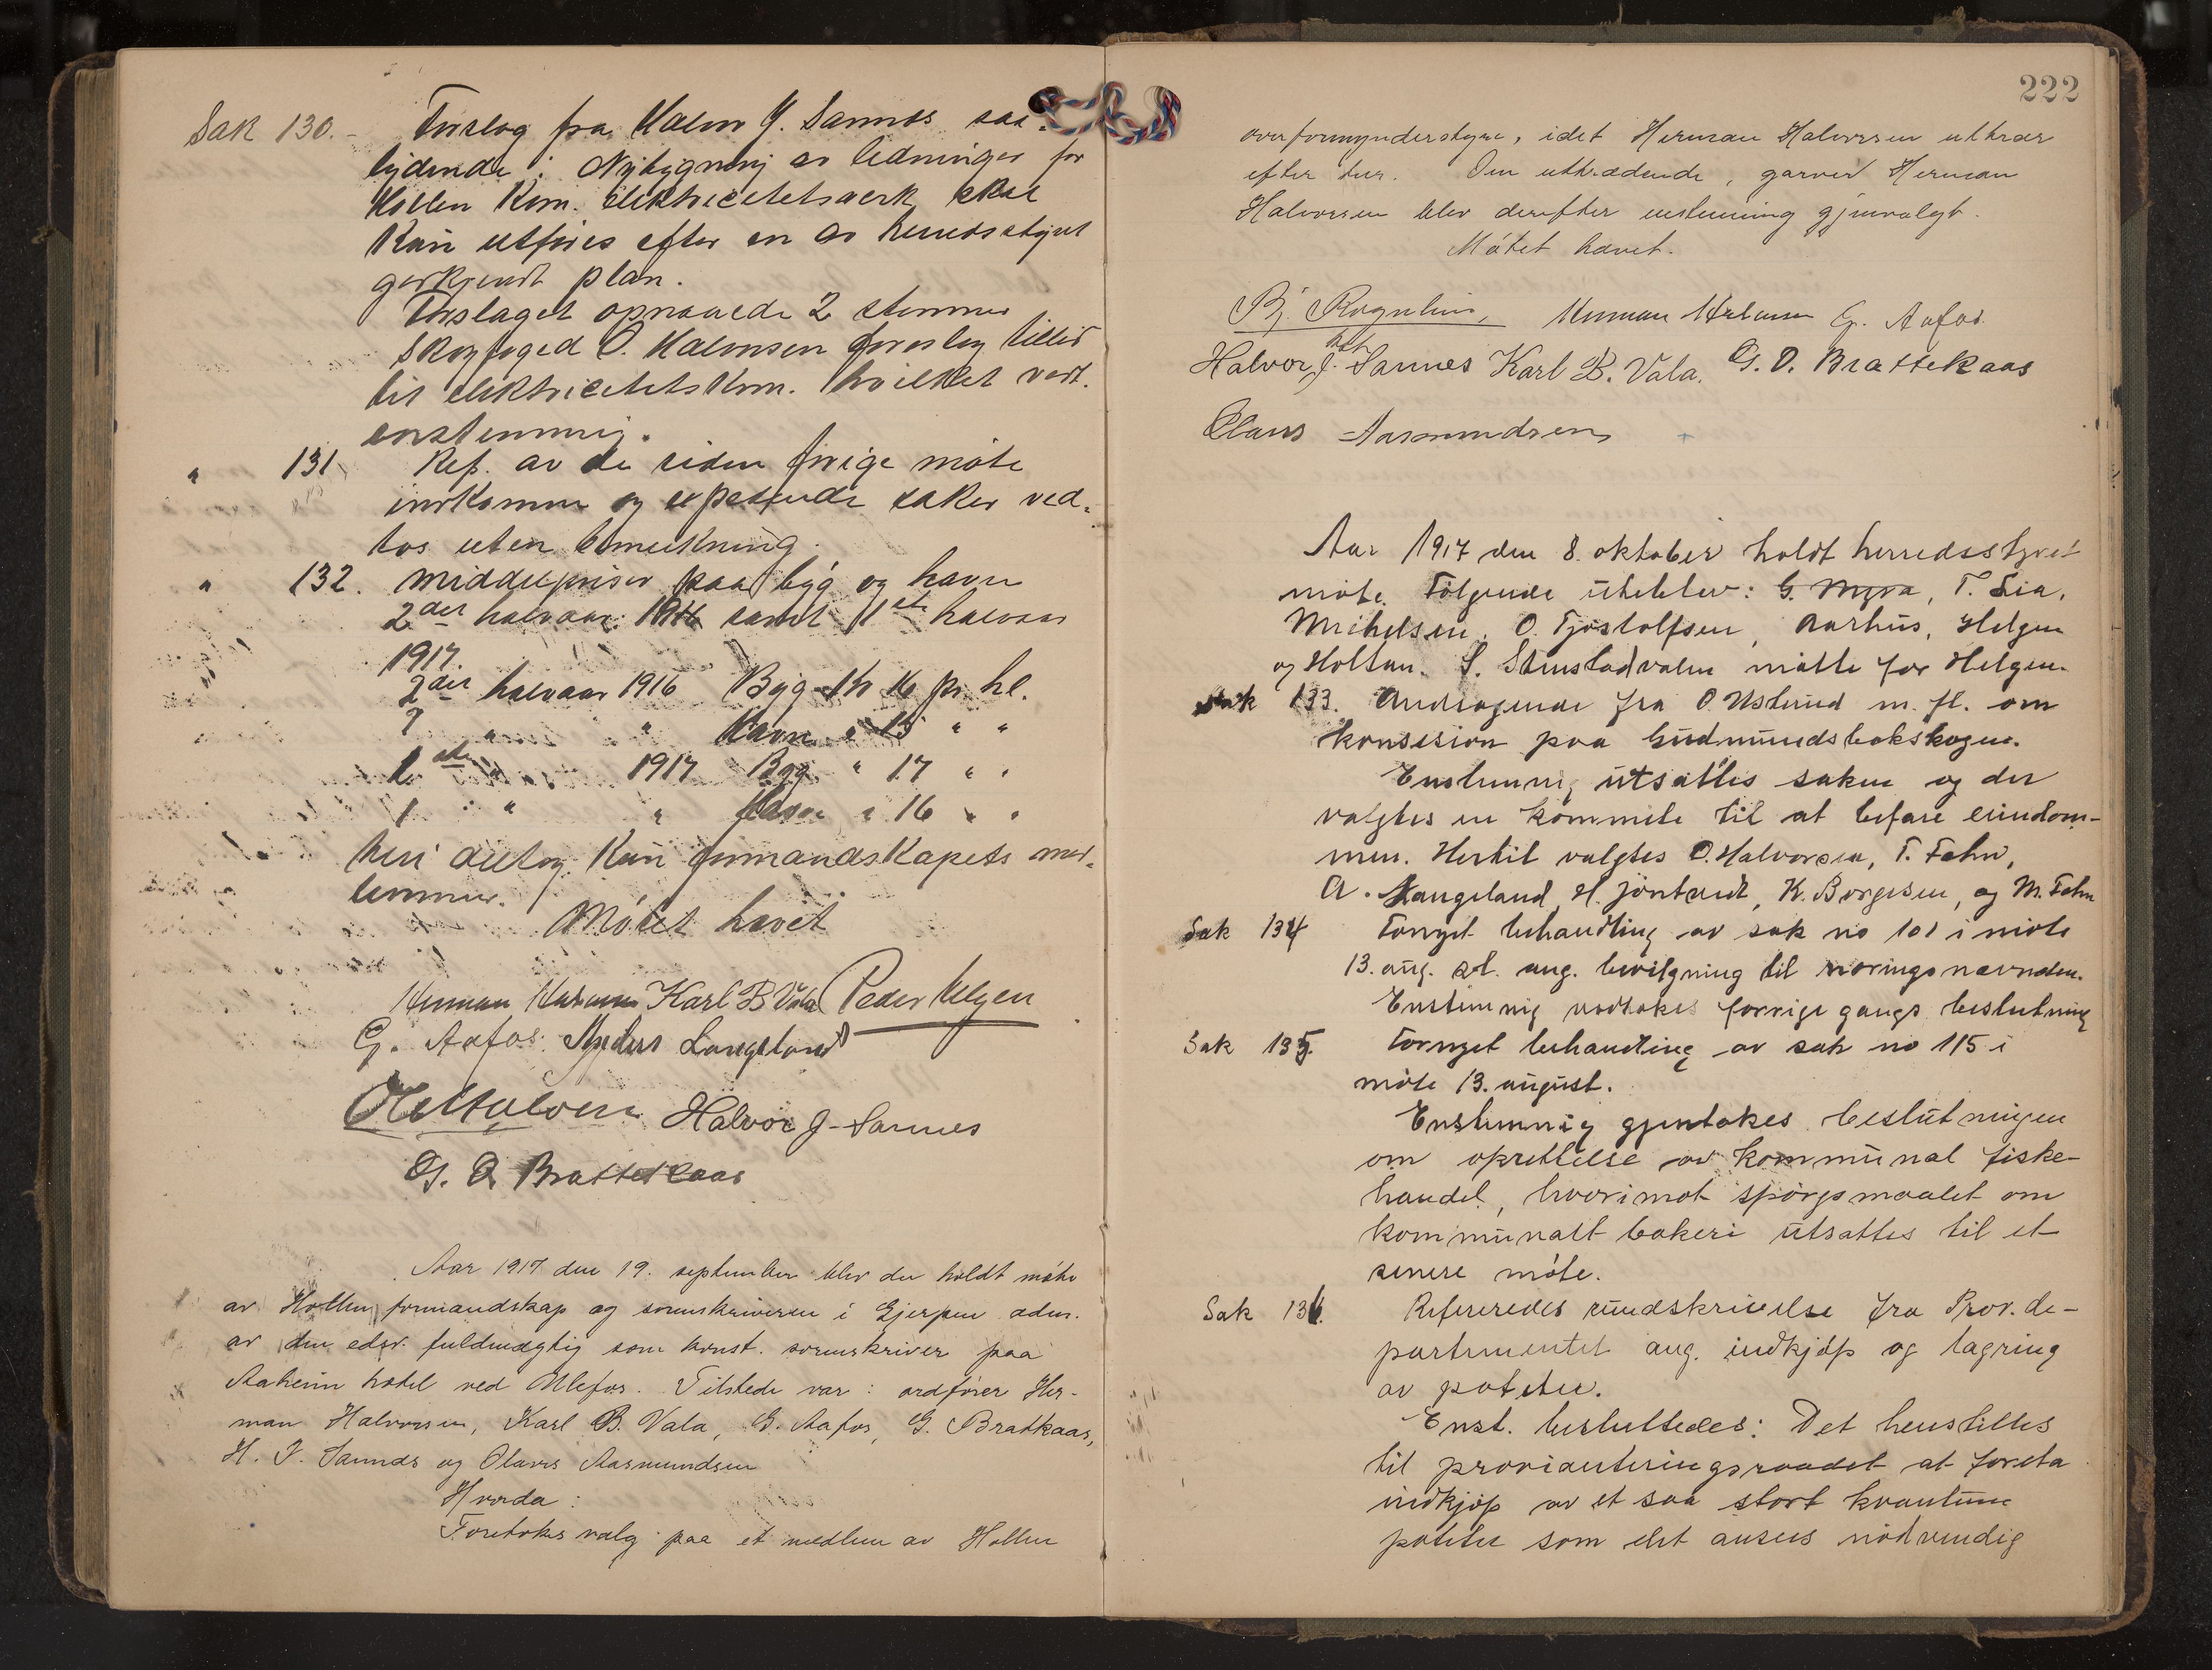 Sak 130.- Forslag fra Halvor J. Sannes saa-
lydende: Nybygning av ledninger for
Hollen Kom. elektricitetsverk skal
kun utføres efter en av herredsstyret
godkjendt plan.
Forslaget opnaaede 2 stemmer
Skogfoged O. Halvorsen foreslog tillid
til elektricitetskom. hvilket vedt.
enstemmig.
" 131. Ref. av de siden forrige møte
indkomne og expederede saker ved-
tos uten bemerkning.
" 132. Middelpriser paa byg og havre
2det halvaar 1916 samt 1ste halvaar
1917.
2det halvaar 1916 Byg Kr 16 pr. hl.
2 " " Havre " 15 " "
1ste " 1917 Byg " 17 " "
1 " " Havre " 16 " "
Heri deltog kun formandskapets med-
lemmer.
Møtet hævet
Herman Halvorsen Karl B Vala Peder Helgen
G. Aafos. Anders Langeland
O Halvorsen Halvor J. Sannes
G. O. Brattekaas
Aar 1917 den 19. september blev der holdt møte
av Hollen formandskap og sorenskriveren i Gjerpen adm.
av den edsv. fuldmægtig som konst. sorenskriver paa
Aaheim hotel ved Ulefos. Tilstede var: ordfører Her-
man Halvorsen, Karl B. Vala, G. Aafos, G. Bratkaas,
H. J. Sannes og Olaves Aasmundsen
Hvorda:
Foretokes valg paa et medlem av Hollen
222
overformynderstyre, idet Herman Halvorsen uttrær
efter tur. Den uttrædende, garver Herman
Halvorsen blev derefter enstemmig gjenvalgt.
Møtet hævet.
Herman Halvorsen G. Aafos.
Halvor J. Sannes Karl B. Vala. G. O. Brattekaas
Olaves Aasmundsen
Aar 1917 den 8. oktober holdt herredsstyret
møte. Følgende uteblev: G. Myra, T. Lia,
Mikelsen, O. Tjostolfsen, Aarhus, Helgen
og Holtan. S. Stenstadvalen møtte for Helgen.
Sak 133. Andragende fra O. Nslund m. fl. om
konsesion paa Gudmundsbakskogen.
Enstemmig utsattes saken og der
valgtes en kommite til at befare eiendom-
men. Hertil valgtes O. Halvorsen, T. Fehn,
A. Langeland, H. Jøntvedt, K. Borgesen, og M. Fehn
Sak 134 Fornyet behandling av sak no 101 i møte
13. aug. d. aug. bevilgning til næringsnævnden.
Enstemmig vedtokes forrige gangs beslutning
Sak 135. Fornyet behandling av sak no 115 i
møte 13. august.
Enstemmig gjentokes beslutningen
om oprettelse av kommunal fiske-
handel, hvorimot spørgsmaalet om
kommunalt bakeri utsattes til et
senere møte.
Sak 136. Refereredes rundskrivelse fra Prov. de-
partementet ang. indkjøp og lagring
av poteter.
Enst. besluttedes: Det henstilles
til provianteringsraadet at foreta
indkjøp av et saa stort kvantum
poteter som det ansees nødvendig